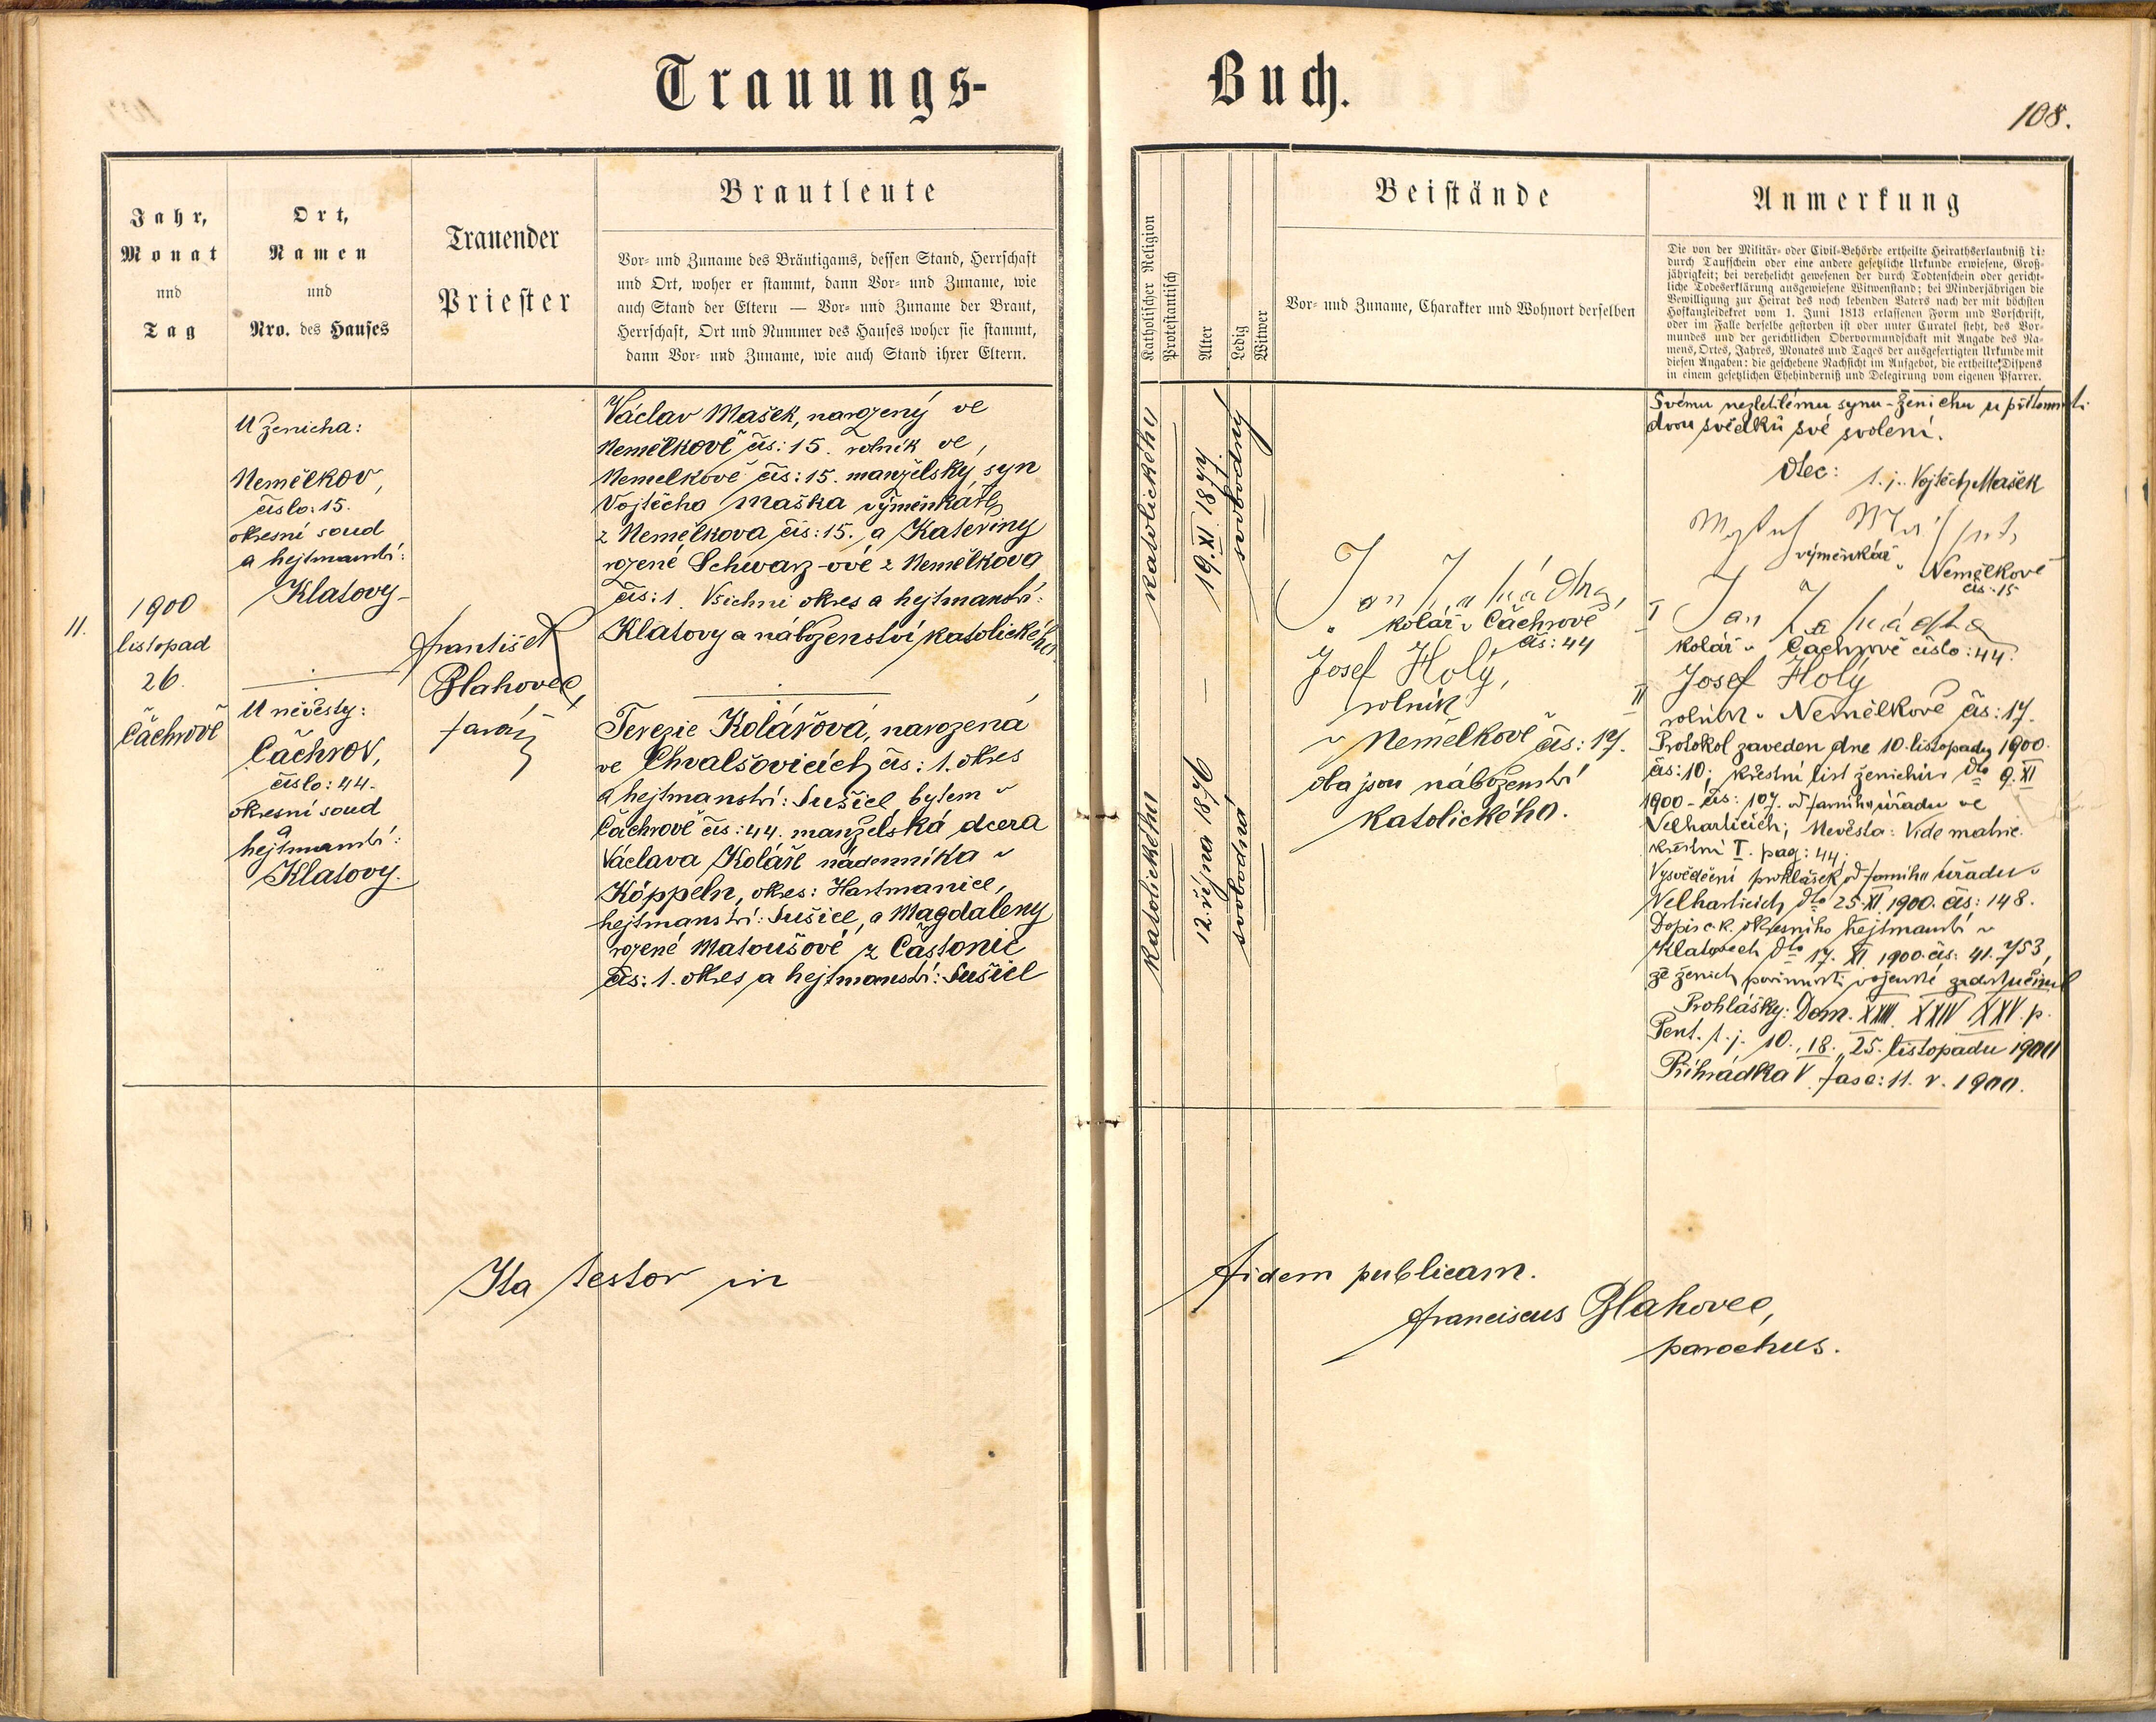 Trauungs-
Buch.
108.
Jahr,
Monat
und
Tag
Ort,
Namen
und
Nro. des Hauses
Trauender
Priester
Brautleute
Vor- und Zuname des Bräutigams, dessen Stand, Herrschaft
und Ort, woher er stammt, dann Vor- und Zuname, wie
auch Stand der Eltern — Vor- und Zuname der Braut,
Herrschaft, Ort und Nummer des Hauses woher sie stammt,
dann Vor- und Zuname, wie auch Stand ihrer Eltern.
Katholischer Religion
Protestantisch
Alter
Ledig
Witwer
Beistände
Vor- und Zuname, Charakter und Wohnort derselben
Anmerkung
Die von der Militär- oder Civil-Behörde ertheilte Heirathserlaubniß di:
durch Taufschein oder eine andere gesetzliche Urkunde erwiesene, Groß-
jährigkeit; bei verehelicht gewesenen der durch Todtenschein oder gericht-
liche Todeserklärung ausgewiesene Witwenstand; bei Minderjährigen die
Bewilligung zur Heirat des noch lebenden Vaters nach der mit höchsten
Hofkanzleidekret vom 1. Juni 1813 erlassenen Form und Vorschrift,
oder im Falle derselbe gestorben ist oder unter Curatel steht, des Vor-
mundes und der gerichtlichen Obervormundschaft mit Angabe des Na-
mens, Ortes, Jahres, Monates und Tages der ausgefertigten Urkunde mit
diesen Angaben: die geschehene Nachsicht im Aufgebot, die ertheilte Dispens
in einem gesetzlichen Ehehinderniß und Delegirung vom eigenen Pfarrer.
11.
1900
listopad
26.
Čáchrově
U ženicha:
Nemělkov,
číslo: 15.
okresní soud
a hejtmanství:
Klatovy
U nevěsty:
Čáchrov,
číslo: 44.
okresní soud
a
hejtmanství:
Klatovy.
František
Blahovec,
farář
Václav Mašek, narozený ve
Nemělkově čís: 15. rolník ve
Nemelkově čís: 15. manželský syn
Vojtěcha Maška výměnkáře
z Nemělkova čís: 15. a Kateřiny
rozené Schwarz-ové z Nemělkova
čís: 1. Všichni okres a hejtmanství:
Klatovy a náboženství katolického.
Terezie Kolářová, narozená
ve Chvalšovicích čís: 1. okres
a hejtmanství: Sušice, bytem v
Čáchrově čís: 44. manželská dcera
Václava Koláře nádenníka v
Köppeln, okres: Hartmanice,
hejtmanství: Sušice, a Magdaleny
rozené Matoušové z Částonic
čís: 1. okres a hejtmanství: Sušice
katolického
19. XI 1877.
svobodný
katolického
12. října 1876
svobodná
Jan Zahrádka,
kolář v Čáchrově
čís: 44
Josef Holý,
rolník
v Nemělkově čís: 17.
oba jsou náboženství
katolického.
Svému nezletilému synu-ženichu u přítomnosti
dvou svědků své svolení.
Otec: t. j. Vojtěch Mašek
výměnkář v Nemělkově
čís: 15
I Jan Zahrádka
kolář v Čachrově číslo: 44.
II Josef Holý
rolník v Nemělkově čís: 17.
Protokol zaveden dne 10. listopadu 1900.
čís: 10; křestní list ženichův dto 9. XI
1900 - čís: 107. od farního úřadu ve
Velharticích; Nevěsta: Vide matric.
křestní I. pag: 44;
Vysvědčení prohlášek od farního úřadu v
Velharticích dto 25. XI 1900. čís: 148.
Dopis c. k. okresního hejtmanství v
Klatovech dto 17. XI 1900. čís: 41.753,
že ženich povinnosti vojenské zadostučinil
Prohlášky: Dom. XXIII XXIV XXV. p.
Pent. t. j. 10., 18., 25. listopadu 1900
Přihrádka V. fasc: 11. r. 1900.
Ita testor in
fidem publicam.
Franciscus Blahovec,
parochus.